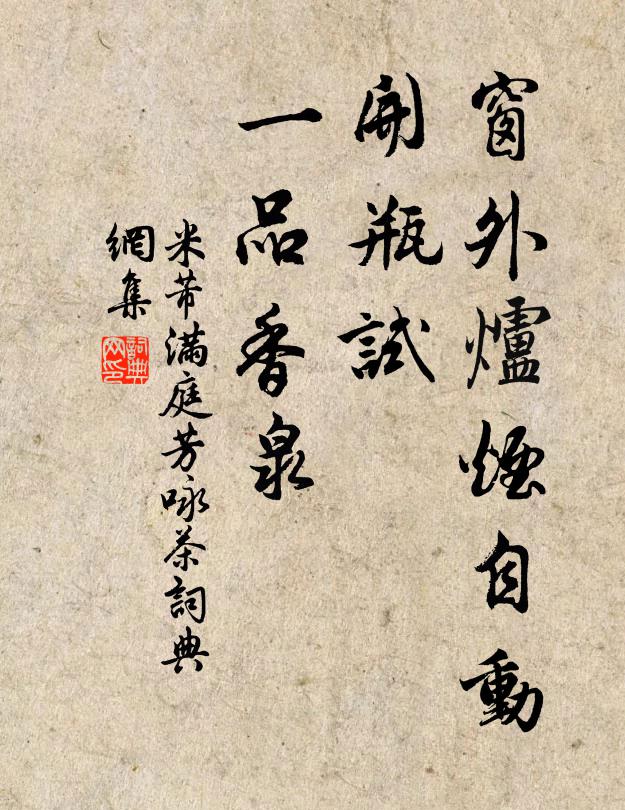 窗外爐煙自動
開瓶試
一品香泉
米芾滿庭芳咏茶詞典
網集
詞典
网印